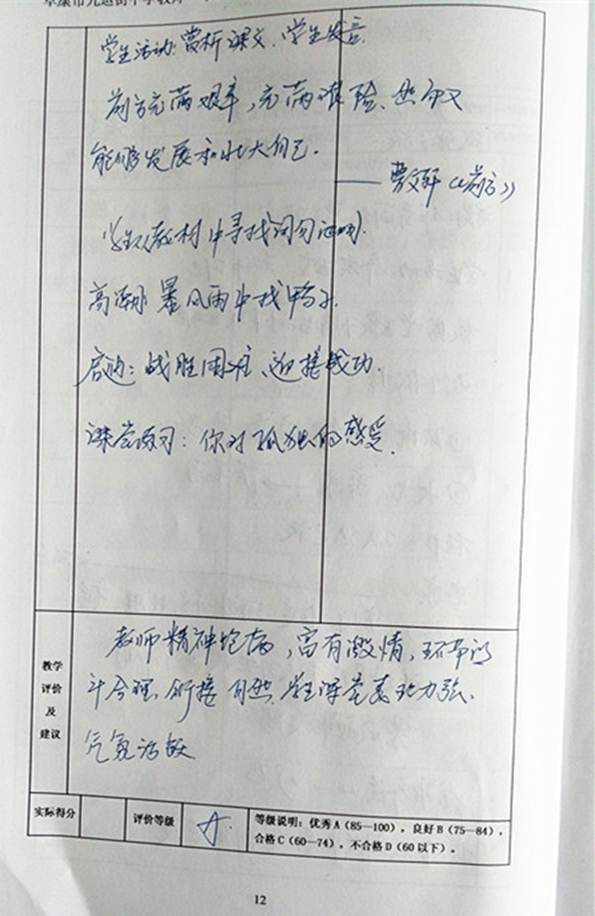 学生活动:赏析课文、学生发言.
前方充满艰辛,充满艰险.然而又
能够发展和壮大自己.
——曹文轩《前方》
学生从教材中寻找词句证明.
高潮 暴风雨中找鸭子.
启迪:战胜困难、迎接成功.
课堂练习:你对孤独的感受.
教学
评价
及
建议
教师精神饱满,富有激情,环节设
计合理、衔接自然.学生课堂表现力强.
气氛活跃
实际得分
评价等级
A.
等级说明:优秀A(85—100),良好B(75—84),
合格C(60—74),不合格D(60以下)。
12